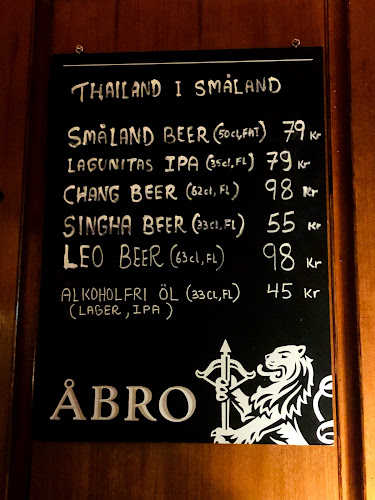 THAILAND I SMÅLAND
SMÅLAND BEER (50cl, FAT) 79 Kr
LAGUNITAS IPA (35cl, FL) 79 Kr
CHANG BEER (62cl, FL) 98 Kr
SINGHA BEER (33cl, FL) 55 Kr
LEO BEER (63cl, FL) 98 Kr
ALKOHOLFRI ÖL (33CL, FL) 45 Kr
(LAGER, IPA)
ÅBRO